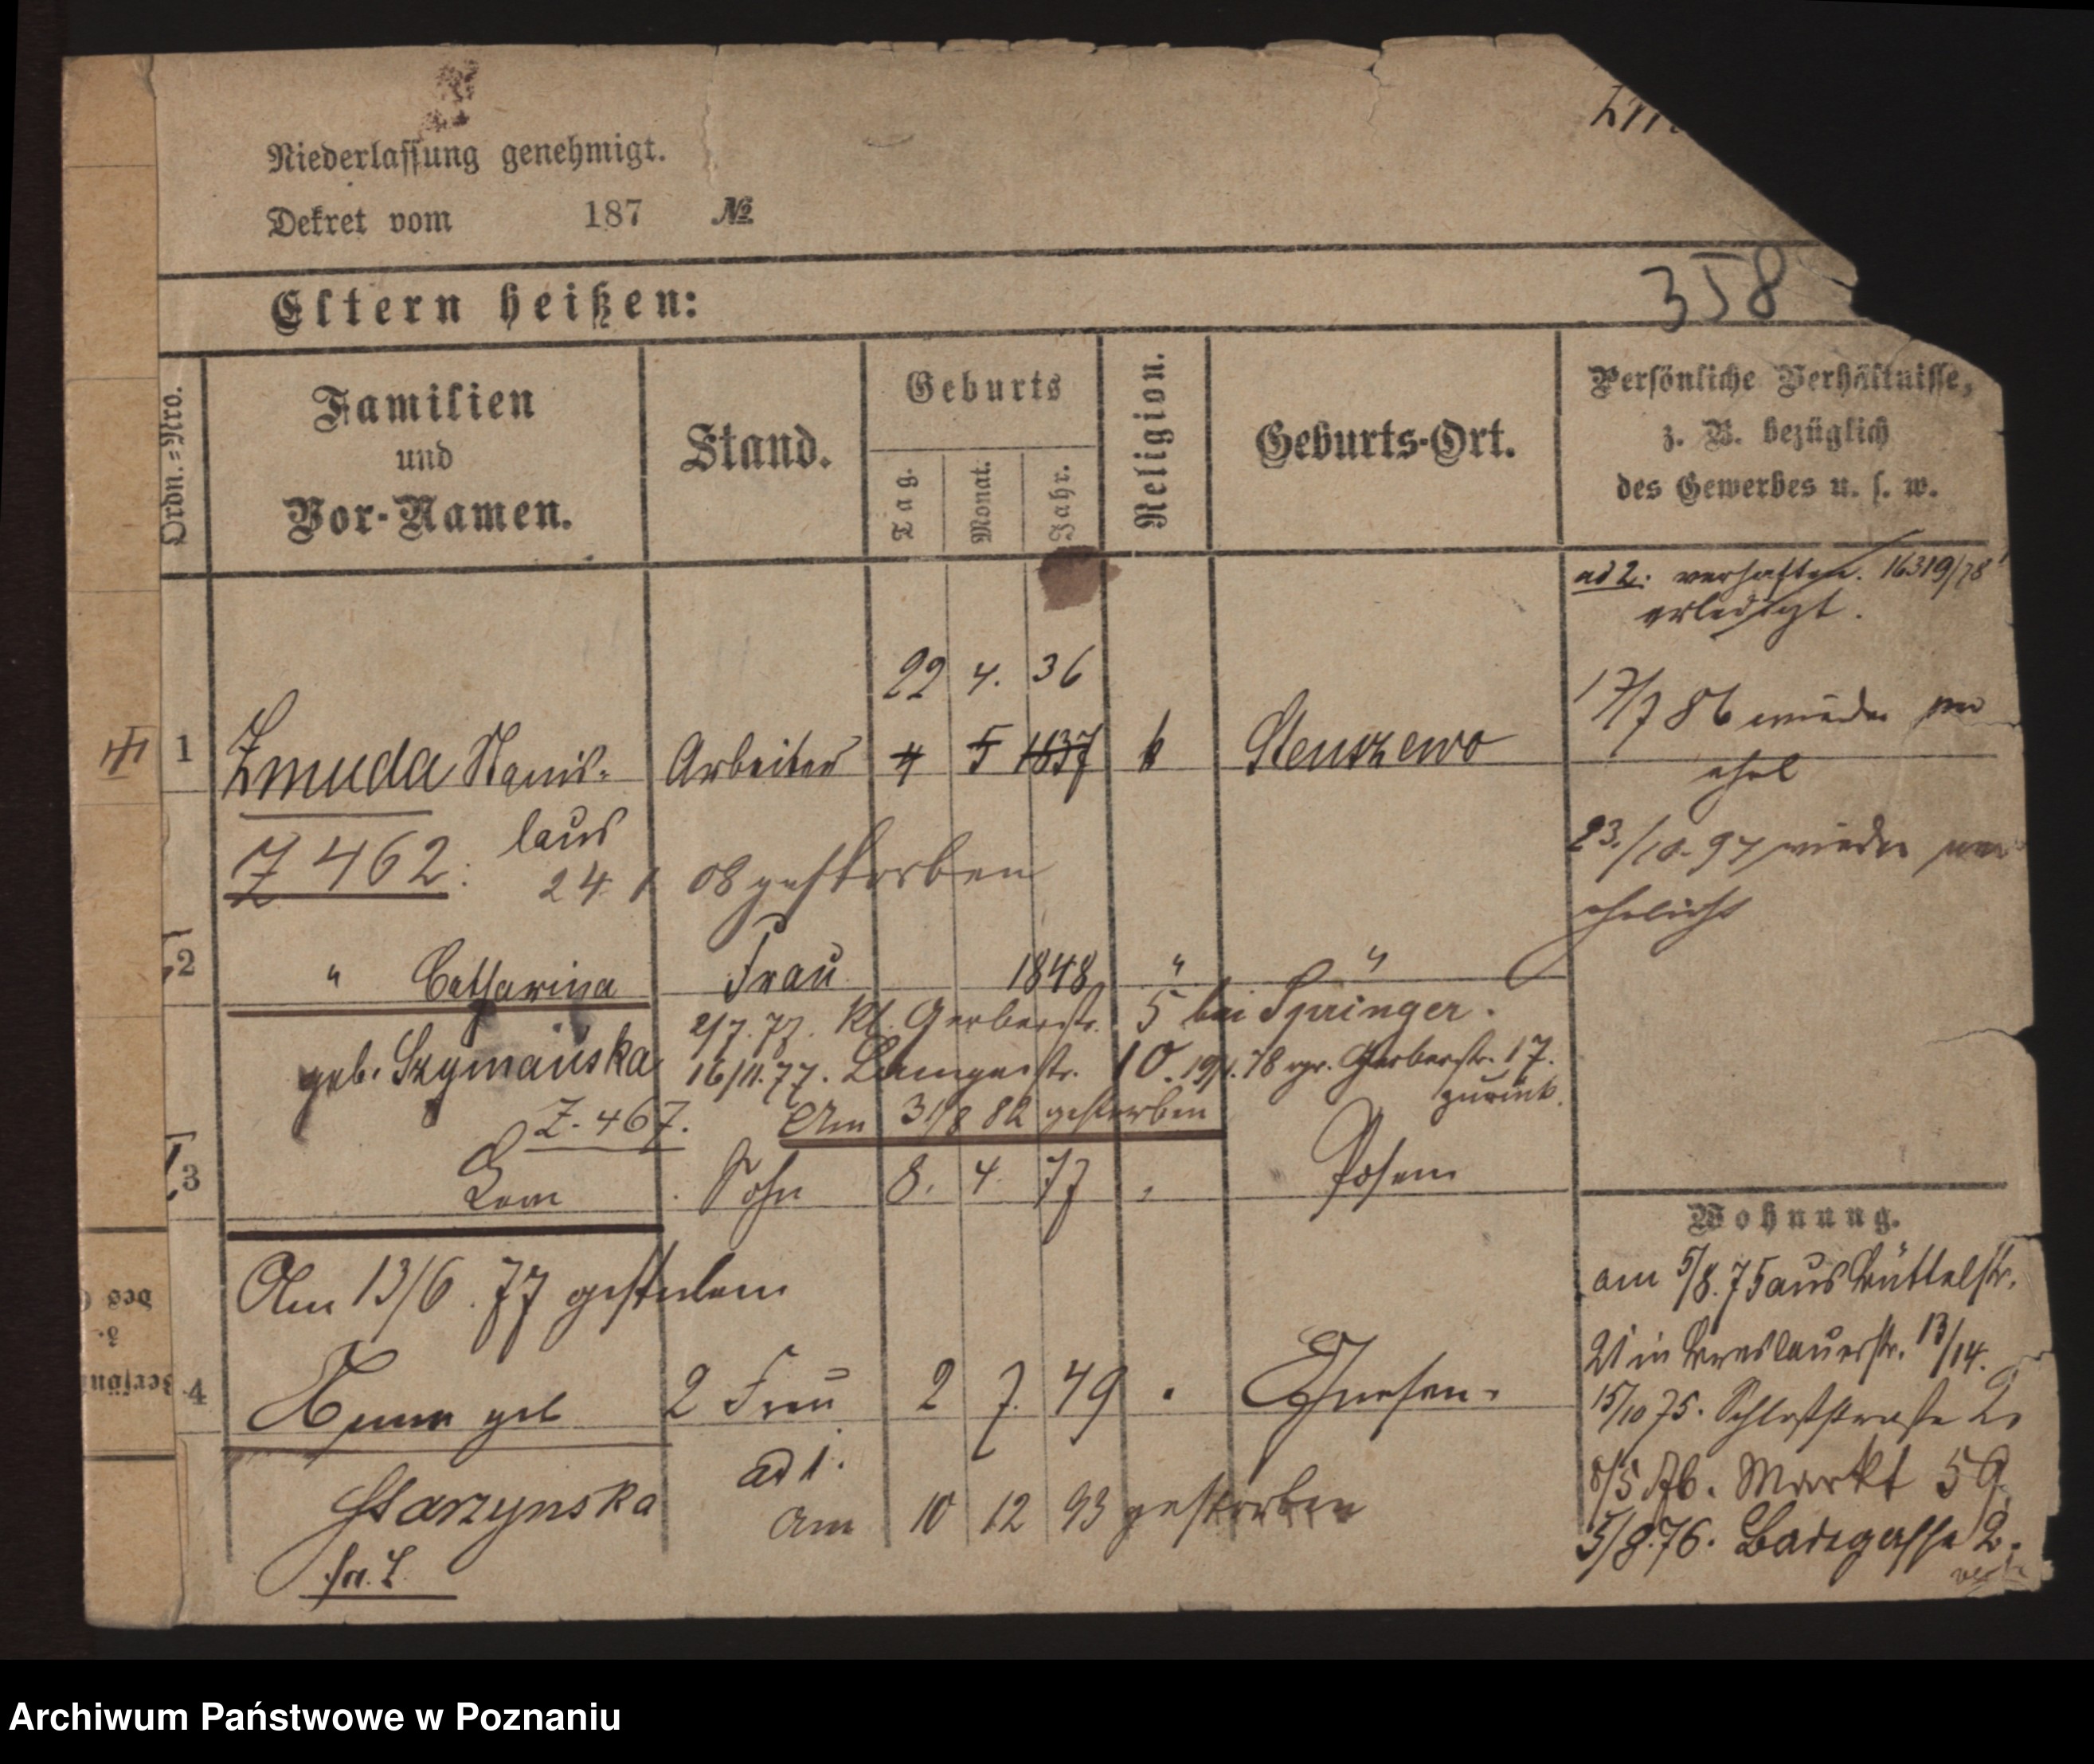 Niederlassung genehmigt.
Dekret vom 187 №
358
Eltern heißen:
Ordn.=Nro.
Familien
und
Vor-Namen.
Stand.
Geburts
Tag.
Monat.
Jahr.
Religion.
Geburts-Ort.
Persönliche Verhältnisse,
z. B. bezüglich
des Gewerbes u. s. w.
ad 2: verhaften. 16319/78
erledigt.
22 4. 36
1 Zmuda Stanis-
laus
Arbeiter 4 5 1837 k Stenszewo
17/7 86 wieder ver
ehel
Z 462:
24. 1 08 gestorben
23./10. 97 wieder ver
ehelicht
2 " Catharina Frau 1848 " "
geb. Szymańska
Z. 467.
2/7. 77. Kl. Gerberstr. 5 bei Springer.
16/11. 77. 10. 19/1. 78 gr. Gerberstr. 17.
zurück.
Am 31/8 82 gestorben
3 Leon Sohn 8. 4. 77 Posen
Am 13/6. 77 gestorben
4 geb 2 Frau 2 7. 49 Gnesen
Starzynska
ad 1.
am 10 12 93 gestorben
Wohnung.
am 5/8. 75 aus Büttelstr.
21 in Breslauerstr. 13/14.
15/10 75. Schloßstraße 2.
8/5 76. Markt 59.
5/8. 76. Badegasse 2.
Archiwum Państwowe w Poznaniu